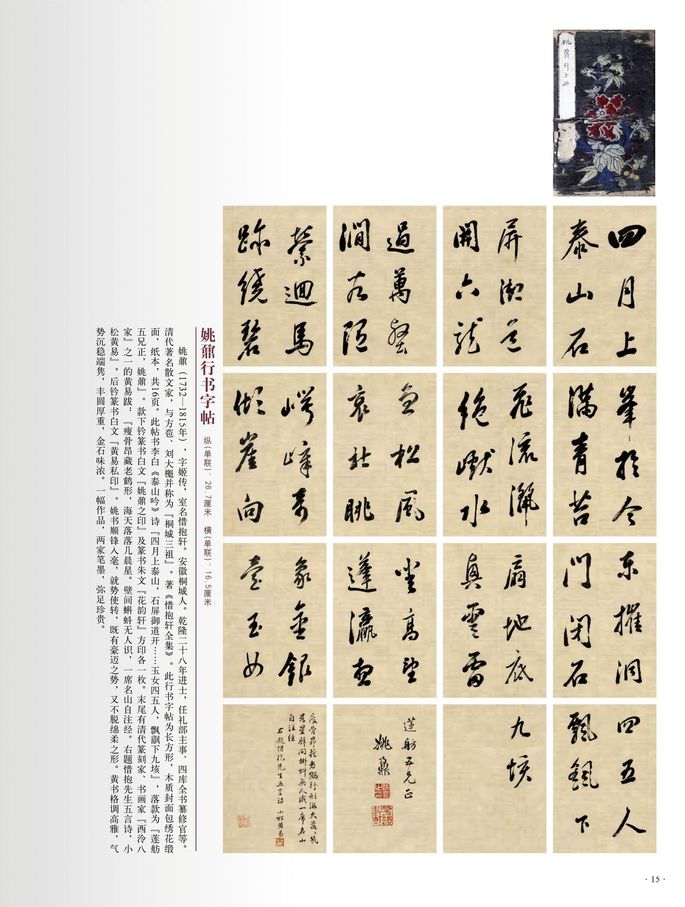 四月上
泰山石
屏御道
開六龍
過萬壑
澗谷隨
縈迴馬
跡繞碧
峯於今
滿青苔
飛流灑
絕巘水
急松風
哀北眺
崿嶂奇
傾崖向
東摧洞
門閉石
扇地底
興雲雷
登高望
蓬瀛想
象金銀
臺玉女
四五人
飄颻下
九垓
蓮舫五兄正
姚鼐
瘦骨昂藏老鶴形海天落落幾
晨星壁間蝌蚪無人識一席名山
自注經
右題惜抱先生五言詩 小松黄易
姚鼐行书字帖 纵(单联):26.7厘米 横(单联):16.5厘米
姚鼐(1732—1815年),字姬传,室名惜抱轩。安徽桐城人。乾隆二十八年进士,任礼部主事、四库全书纂修官等。
清代著名散文家,与方苞、刘大櫆并称为『桐城三祖』。著《惜抱轩全集》。此行书字帖为长方形,木质封面包绣花缎
面,纸本,共16页。此帖书李白《泰山吟》诗『四月上泰山,石屏御道开……玉女四五人,飘飖下九垓』,落款为『莲舫
五兄正,姚鼐』。款下钤篆书白文『姚鼐之印』及篆书朱文『花韵轩』方印各一枚。末尾有清代篆刻家、书画家『西泠八
家』之一的黄易跋:『瘦骨昂藏老鹤形,海天落落几晨星。壁间蝌蚪无人识,一席名山自注经。右题惜抱先生五言诗,小
松黄易』。后钤篆书白文『黄易私印』。姚书顺锋入毫,就势使转,既有豪迈之势,又不脱绵柔之形。黄书格调高雅,气
势沉稳端隽,丰圆厚重,金石味浓。一幅作品,两家笔墨,弥足珍贵。
·15·